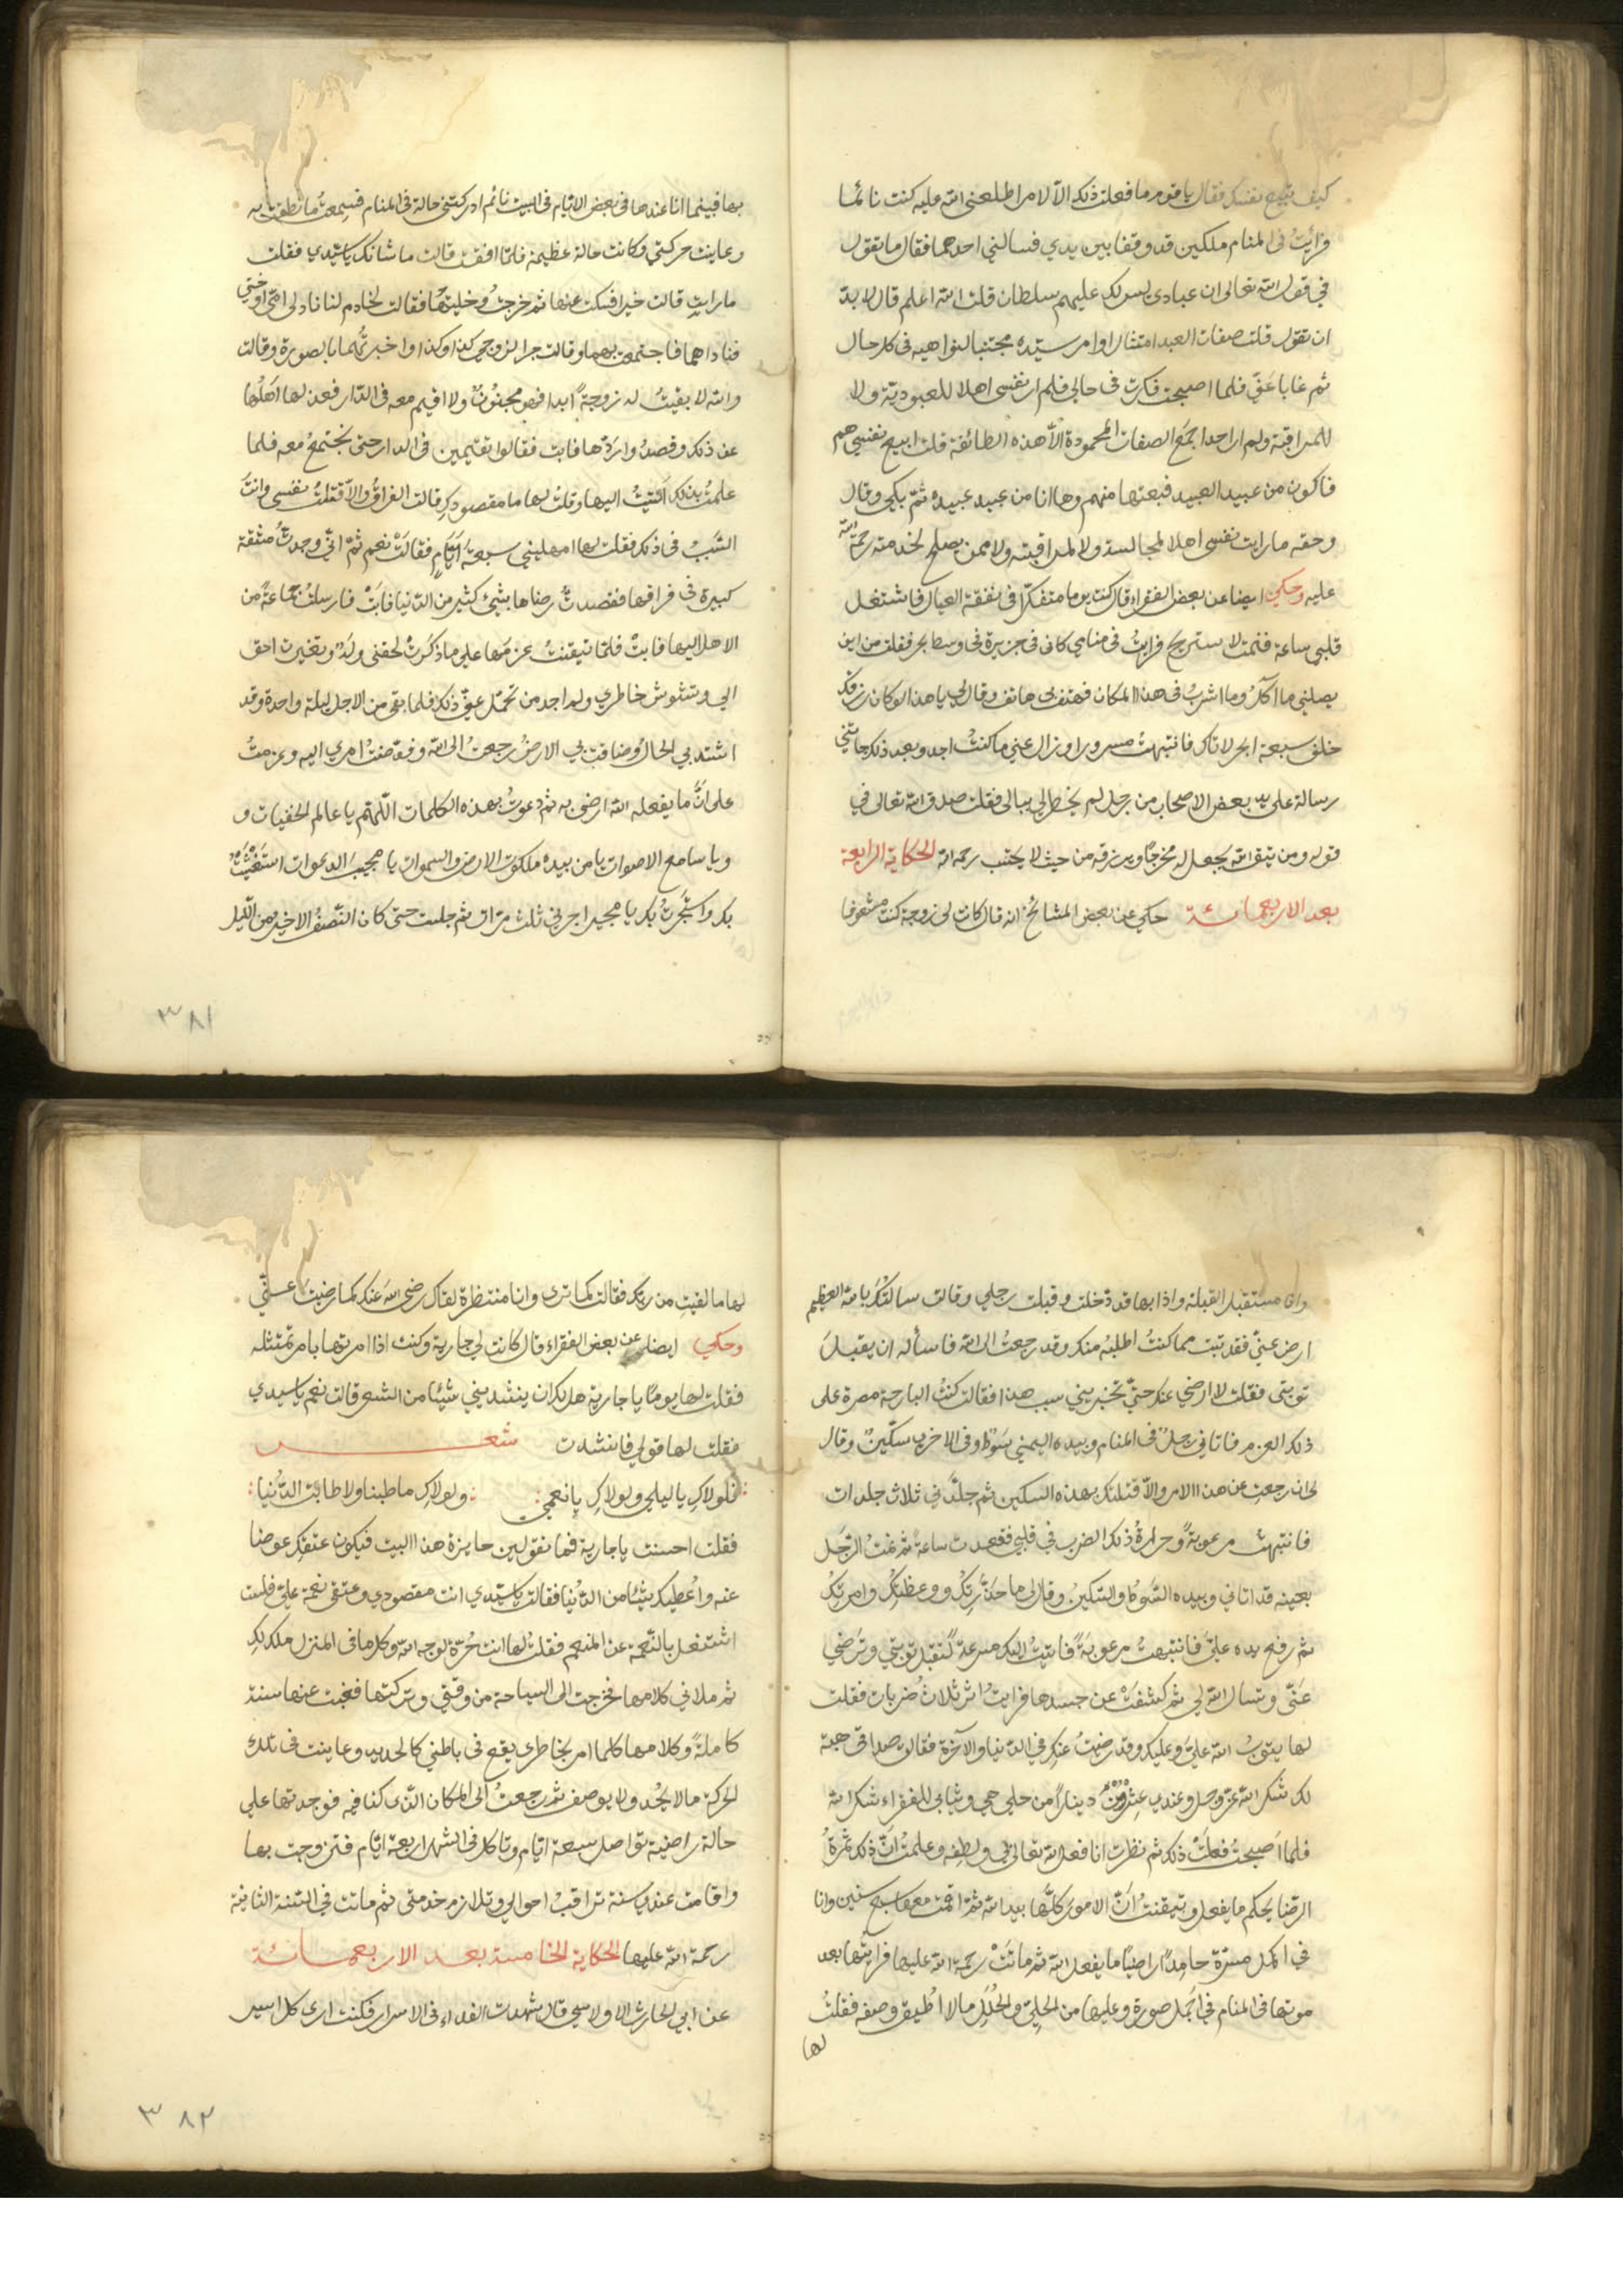 كيف تبيع نفسك فقال يا قوم ما فعلت ذلك الا لامر اطلعني الله عليه كنت نائما
فرايت في المنام ملكين قد وقفا بين يدي فسالني احدهما فقال ما تقول
في قول الله تعالى ان عبادي ليس لك عليهم سلطان قلت الله اعلم قال لا بد
ان تقول قلت صفات العبد امتثال اوامر سيده مجتنبا لنواهيه في كل حال
ثم غابا عني فلما اصبحت فكرت في حالي فلم ار نفسي اهلا للعبودية ولا
للمراقبة ولم ار احدا جمع الصفات المحمودة الا هذه الطائفة قلت ابيع نفسي منهم
فاكون من عبيد العبيد فبعتها منهم وها انا من عبيد عبيده ثم بكى وقال
وحقه ما رايت نفسي اهلا لمجالسته ولا لمراقبته ولا ممن يصلح لخدمته رحمة الله
عليه وحكي ايضا عن بعض الفقراء قال كنت يوما متفكرا في نفقة العيال فاشتغل
قلبي ساعة فنمت لاستريح فرايت في منامي كاني في جزيرة في اوسط بحر فقلت من اين
يصلني ما آكل وما اشرب في هذا المكان فهتف بي هاتف وقال لي يا هذا لو كان رزقك
خلف سبعة ابحر لاتاك فانتبهت مسرورا وزال عني ما كنت اجد وبعد ذلك جائتني
رسالة على يد بعض الاصحاب من رجل لم يخطر لي ببالي فقلت صدق الله تعالى في
قوله ومن يتق الله يجعل له مخرجا ويرزقه من حيث لا يحتسب رحمه الله الحكاية الرابعة
بعد الاربعمائة حكي عن بعض المشائخ انه قال كانت لي زوجة كنت مشغوفا
بها فبينما انا عندها في بعض الايام في البيت نائم ادركتني حالة في المنام فسمعت ما نطقت به
وعاينت حركتي وكانت حالة عظيمة فلما افقت قالت ما شانك يا سيدي فقلت
ما رايت قالت خيرا فسكت عنها ثم خرجت وخليتها فقالت لخادم لنا ناد لي امي او اختي
فناداهما فاجتمعت بهما وقالت جرا لزوجي كذا وكذا واخبرتهما بالصورة وقالت
والله لا بقيت له زوجة ابدا فهو مجنون ولا اقيم معه في الدار فعذلها اهلها
عن ذلك وقصدوا ردها فابت فقالوا تقيمين في الدار حتى نجتمع معه فلما
علمت بذلك اتيت اليها وقلت لها ما مقصودك قالت الفراق والا قتلت نفسي وانت
السبب في ذلك فقلت لها امهليني سبعة ايام فقالت نعم ثم اني وجدت مشقة
كبيرة في فراقها فقصدت رضاها بشئ كثير من الدنيا فابت فارسلت جماعة من
الاهل اليها فابت فلما تيقنت عزمها على ما ذكرت لحقني وله وتغيرت احوا
لي وتشوش خاطري ولم اجد من تحمل عني ذلك فلما بقي من الاجل ليلة واحدة وقد
اشتد بي الحال وضاقت بي الارض رجعت الى الله وفوضت امري اليه وعزمت
على ان ما يفعله الله ارضى به ثم دعوت بهذه الكلمات اللهم يا عالم الخفيات و
ويا سامع الاصوات يا من بيده ملكوت الارض والسموات يا مجيب الدعوات استغثت
بك واستجرت بك يا مجير اجرني ثلث مرات ثم جلست حتى كان النصف الاخير من الليل
٣٨١
وانا مستقبل القبلة واذا بها قد دخلت وقبلت رجلي وقالت سالتك بالله العظيم
ارض عني فقد تبت مما كنت اطلبه منك وقد رجعت الى الله فاسأله ان يقبل
توبتي فقلت لا ارضى عنك حتى تخبريني سبب هذا فقالت كنت البارحة مصرة على
ذلك العزم فاتاني رجل في المنام وبيده اليمنى سوط وفي الاخرى سكين وقال
لي ان رجعت عن هذا الامر والا قتلتك بهذه السكين ثم جلدني ثلاث جلدات
فانتبهت مرعوبة وحرارة ذلك الضرب في قلبي فقعدت ساعة ثم نمت الرجل
بعينه قد اتاني وبيده السوط والسكين وقال لي ما حذرتك ووعظتك وامرتك
ثم رفع يده علي فانتبهت مرعوبة فاتيت اليك مسرعة لتقبل توبتي وترضى
عني وتسال الله لي ثم كشفت عن جسدها فرايت اثر ثلاث ضربات فقلت
لها يتوب الله علي وعليك وقد رضيت عنك في الدنيا والآخرة فقالت صداقي هبة
لك شكر الله عز وجل وعندي عشرون دينارا من حلي هي وثيابي للفقراء شكر الله
فلما اصبحت فعلت ذلك ثم نظرت انا فعل الله تعالى بي ولطفه وعلمت ان ذلك ثمرة
الرضا بحكم ما يفعل وتيقنت ان الامور كلها بيد الله ثم اقمت معها سبع سنين وانا
في اكمل مسرة حامدا راضيا ما يفعل الله ثم ماتت رحمة الله عليها فرايتها بعد
موتها في المنام في اجمل صورة وعليها من الحلي والحلل ما لا اطيق وصفه فقلت
لها
لها ما لقيت من ربك فقالت كما ترى وانا منتظرة لقاك رضي الله عنك كما رضيت عني
وحكي ايضا عن بعض الفقراء قال كانت لي جارية وكنت اذا امرتها بامر تمتثله
فقلت لها يوما يا جارية هل لك ان ينشديني شيئا من الشعر قالت نعم يا سيدي
فقلت لها قولي فانشدت شعر
فلولاك يا ليلى ولولاك يا نعمي ولولاك ما طبنا ولا طابت الدنيا
فقلت احسنت يا جارية فما تقولين جايزة هذا البيت فيكون عتقك عوضا
عنه واعطيك شيئا من الدنيا فقالت يا سيدي انت مقصودي وعتقي نعمة علي فلست
اشتغل بالنعمة عن المنعم فقلت لها انت حرة لوجه الله وكل ما في المنزل ملك لك
ثم ملاني كلامها فخرجت الى السياحة من وقتي وتركتها فغبت عنها سنة
كاملة وكلامها كلما امر بخاطري يقع في باطني كالحديد وعاينت في تلك
الحركة ما لا يحد ولا يوصف ثم رجعت الى المكان الذي كنا فيه فوجدتها على
حالة راضية تواصل سبعة ايام وتاكل في الشهر اربعة ايام فتزوجت بها
واقامت عندي سنة تراقب احوالي وتلازم خدمتي ثم ماتت في السنة الثانية
رحمة الله عليها الحكاية الخامسة بعد الاربعمائة
عن ابي الحارث الاولاسي قال شهدت الفداء في الاسرار فكنت ارى كل اسير
٣٨٢